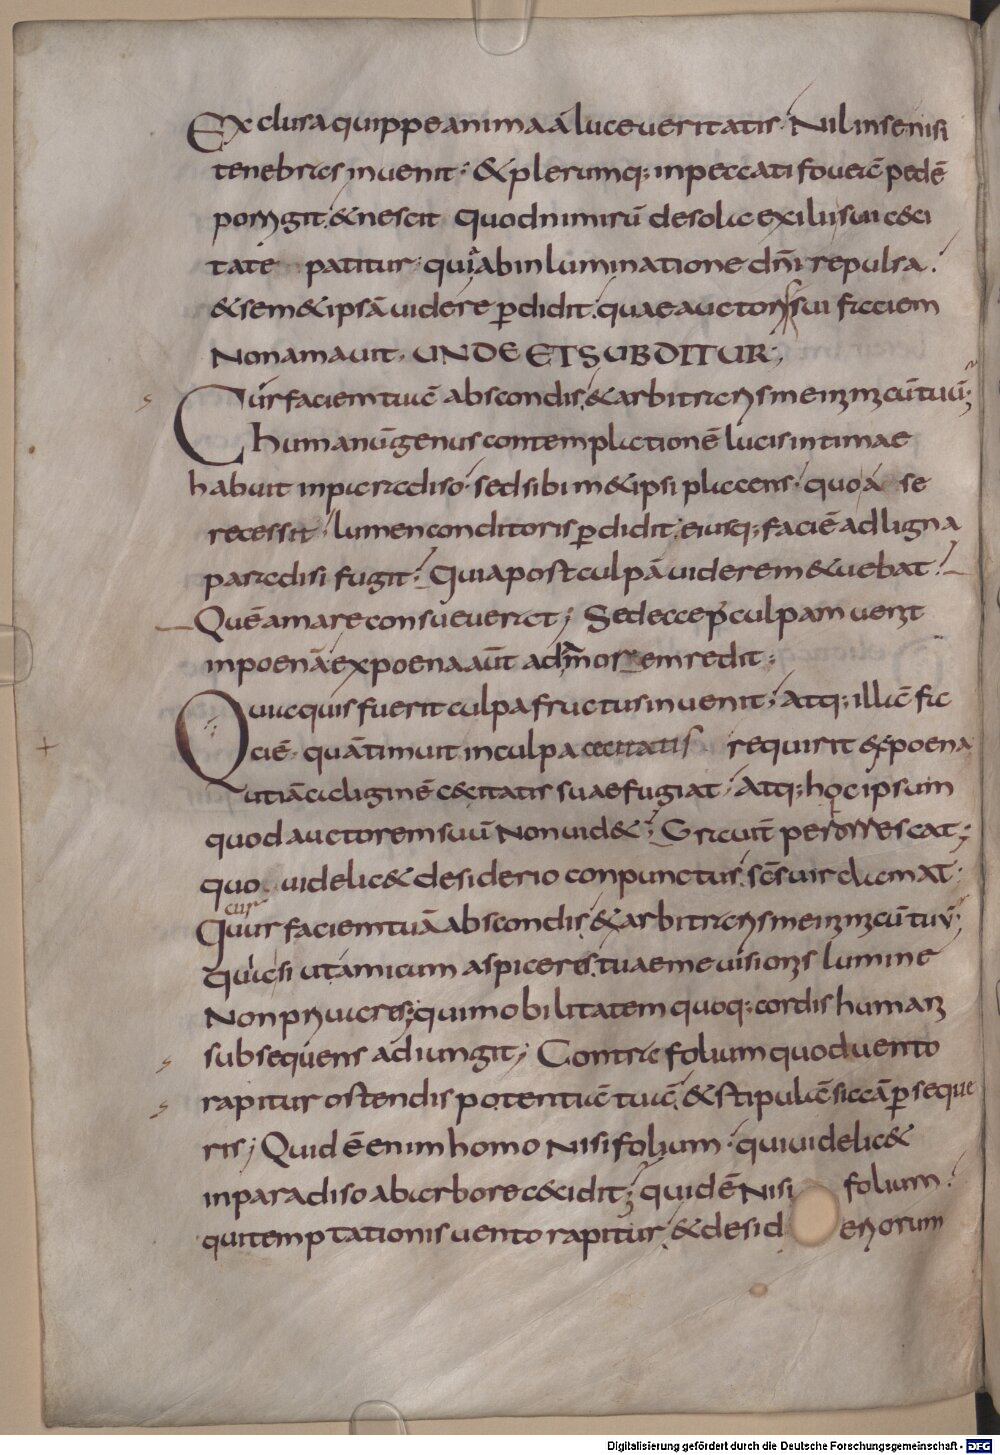 Exclusa quippe anima á luce ueritatis · Nil in se nisi
tenebras inuenit · & plerumq; in peccati foueā pedē
porrigit · & nescit Quod nimirū de sola exilii sui cæci
tate patitur · quia ab inluminatione dn̄i repulsa ·
& sem&ipsā uidere p̄didit · quae auctoris sui faciem
Non amauit · UNDE ET SUBDITUR;
Cur faciem tuā abscondis · & arbitraris me inimicū tuū;
humanū genus contemplationē lucis intimae
habuit in paradiso · sed sibim&ipsi placens · quo á se
recessit · lumen conditoris p̄didit · eiusq; faciē ad ligna
paradisi fugit · Quia post culpā uidere m&uebat ·
Quē amare consueuerat; Sed ecce p̄ culpam uenit
in poenā ex poena aūt ad amorem redit ·
Quia quis fuerit culpa fructus inuenit · Atq; illā fa
ciē · quā timuit in culpa cecitatis requirit & poena
ut iā caliginē cæcitatis suae fugiat · Atq; hoc ipsum
quod auctorem suū Non uid& · Grauit̄ perorrescat;
quo uidelic& desiderio conpunctus · scs̄ uir clamat ·
cur
Quur faciem tuā abscondis · & arbitraris me inimicū tuū;
Quia si ut amicum aspiceres · tuae me uisionis lumine
Non priuares; qui mobilitatem quoq; cordis humani
subsequens adiungit; Contra folium quod uento
rapitur ostendis potentiā tuā · & stipulā siccā p̄seque
ris; Quid ē enim homo Nisi folium · qui uidelic&
in paradiso ab arbore cæcidit; quid ē Nisi folium ·
qui temptationis uento rapitur · & desid eriorum
Digitalisierung gefördert durch die Deutsche Forschungsgemeinschaft - DFG